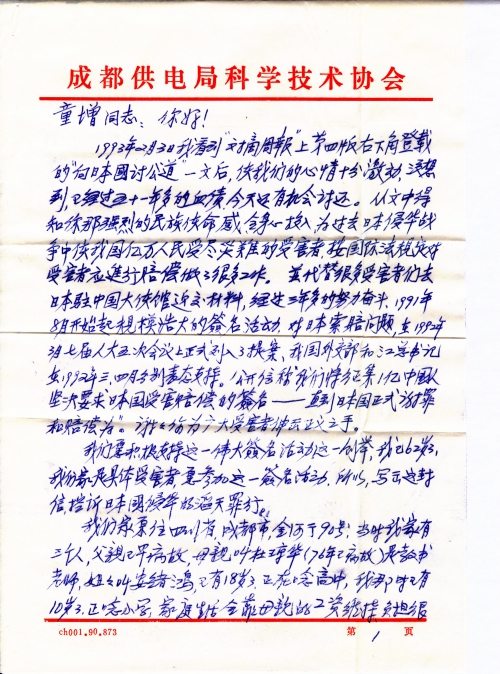 成都供电局科学技术协会
童增同志：你好！
1993年2月3日我看到"文摘周报"上第四版右下角登载
的"向日本国讨公道"一文后，使我们的心情十分激动，没想
到，已经过五十一年多的血债今天还有机会讨还。从文中得
知你那强烈的民族使命感，全身心投入为过去日本侵华战
争中使我国亿万人民受尽灾难的受害者，按国际法规定对
受害者应进行赔偿做了很多工作。并代替很多受害者们去
日本驻中国大使馆递交材料，经过三年多的努力奋斗，1991年
8月开始起规模浩大的签名活动，对日本索赔问题，至1992年
3月七届人大五次会议上正式列入了提案，我国外交部和江总书记
在1992年三、四月分别表态支持。公开信称我们将征集1亿中国人
坚决要求日本国受害赔偿的签名——直到日本国正式谢罪
和赔偿为止"。为广大受害者伸张正义之手。
我们要积极支持这一伟大签名活动这一创举，我已62岁，
我们家是具体受害者更要参加这一签名活动，所以，写上这封
信，控诉日本国侵华的滔天罪行。
我们家原住四川省，成都市，金河街90号，当时我家有
三个人，父亲已早病故，母亲叫杜琼华（76年已病故）是教书
老师，姐姐叫安绪鸿，已有18岁，正在念高中，我那时已有
10岁，正念小学，家庭生活全靠母亲的工资维持负担很
ch001.90.873
第 1 页